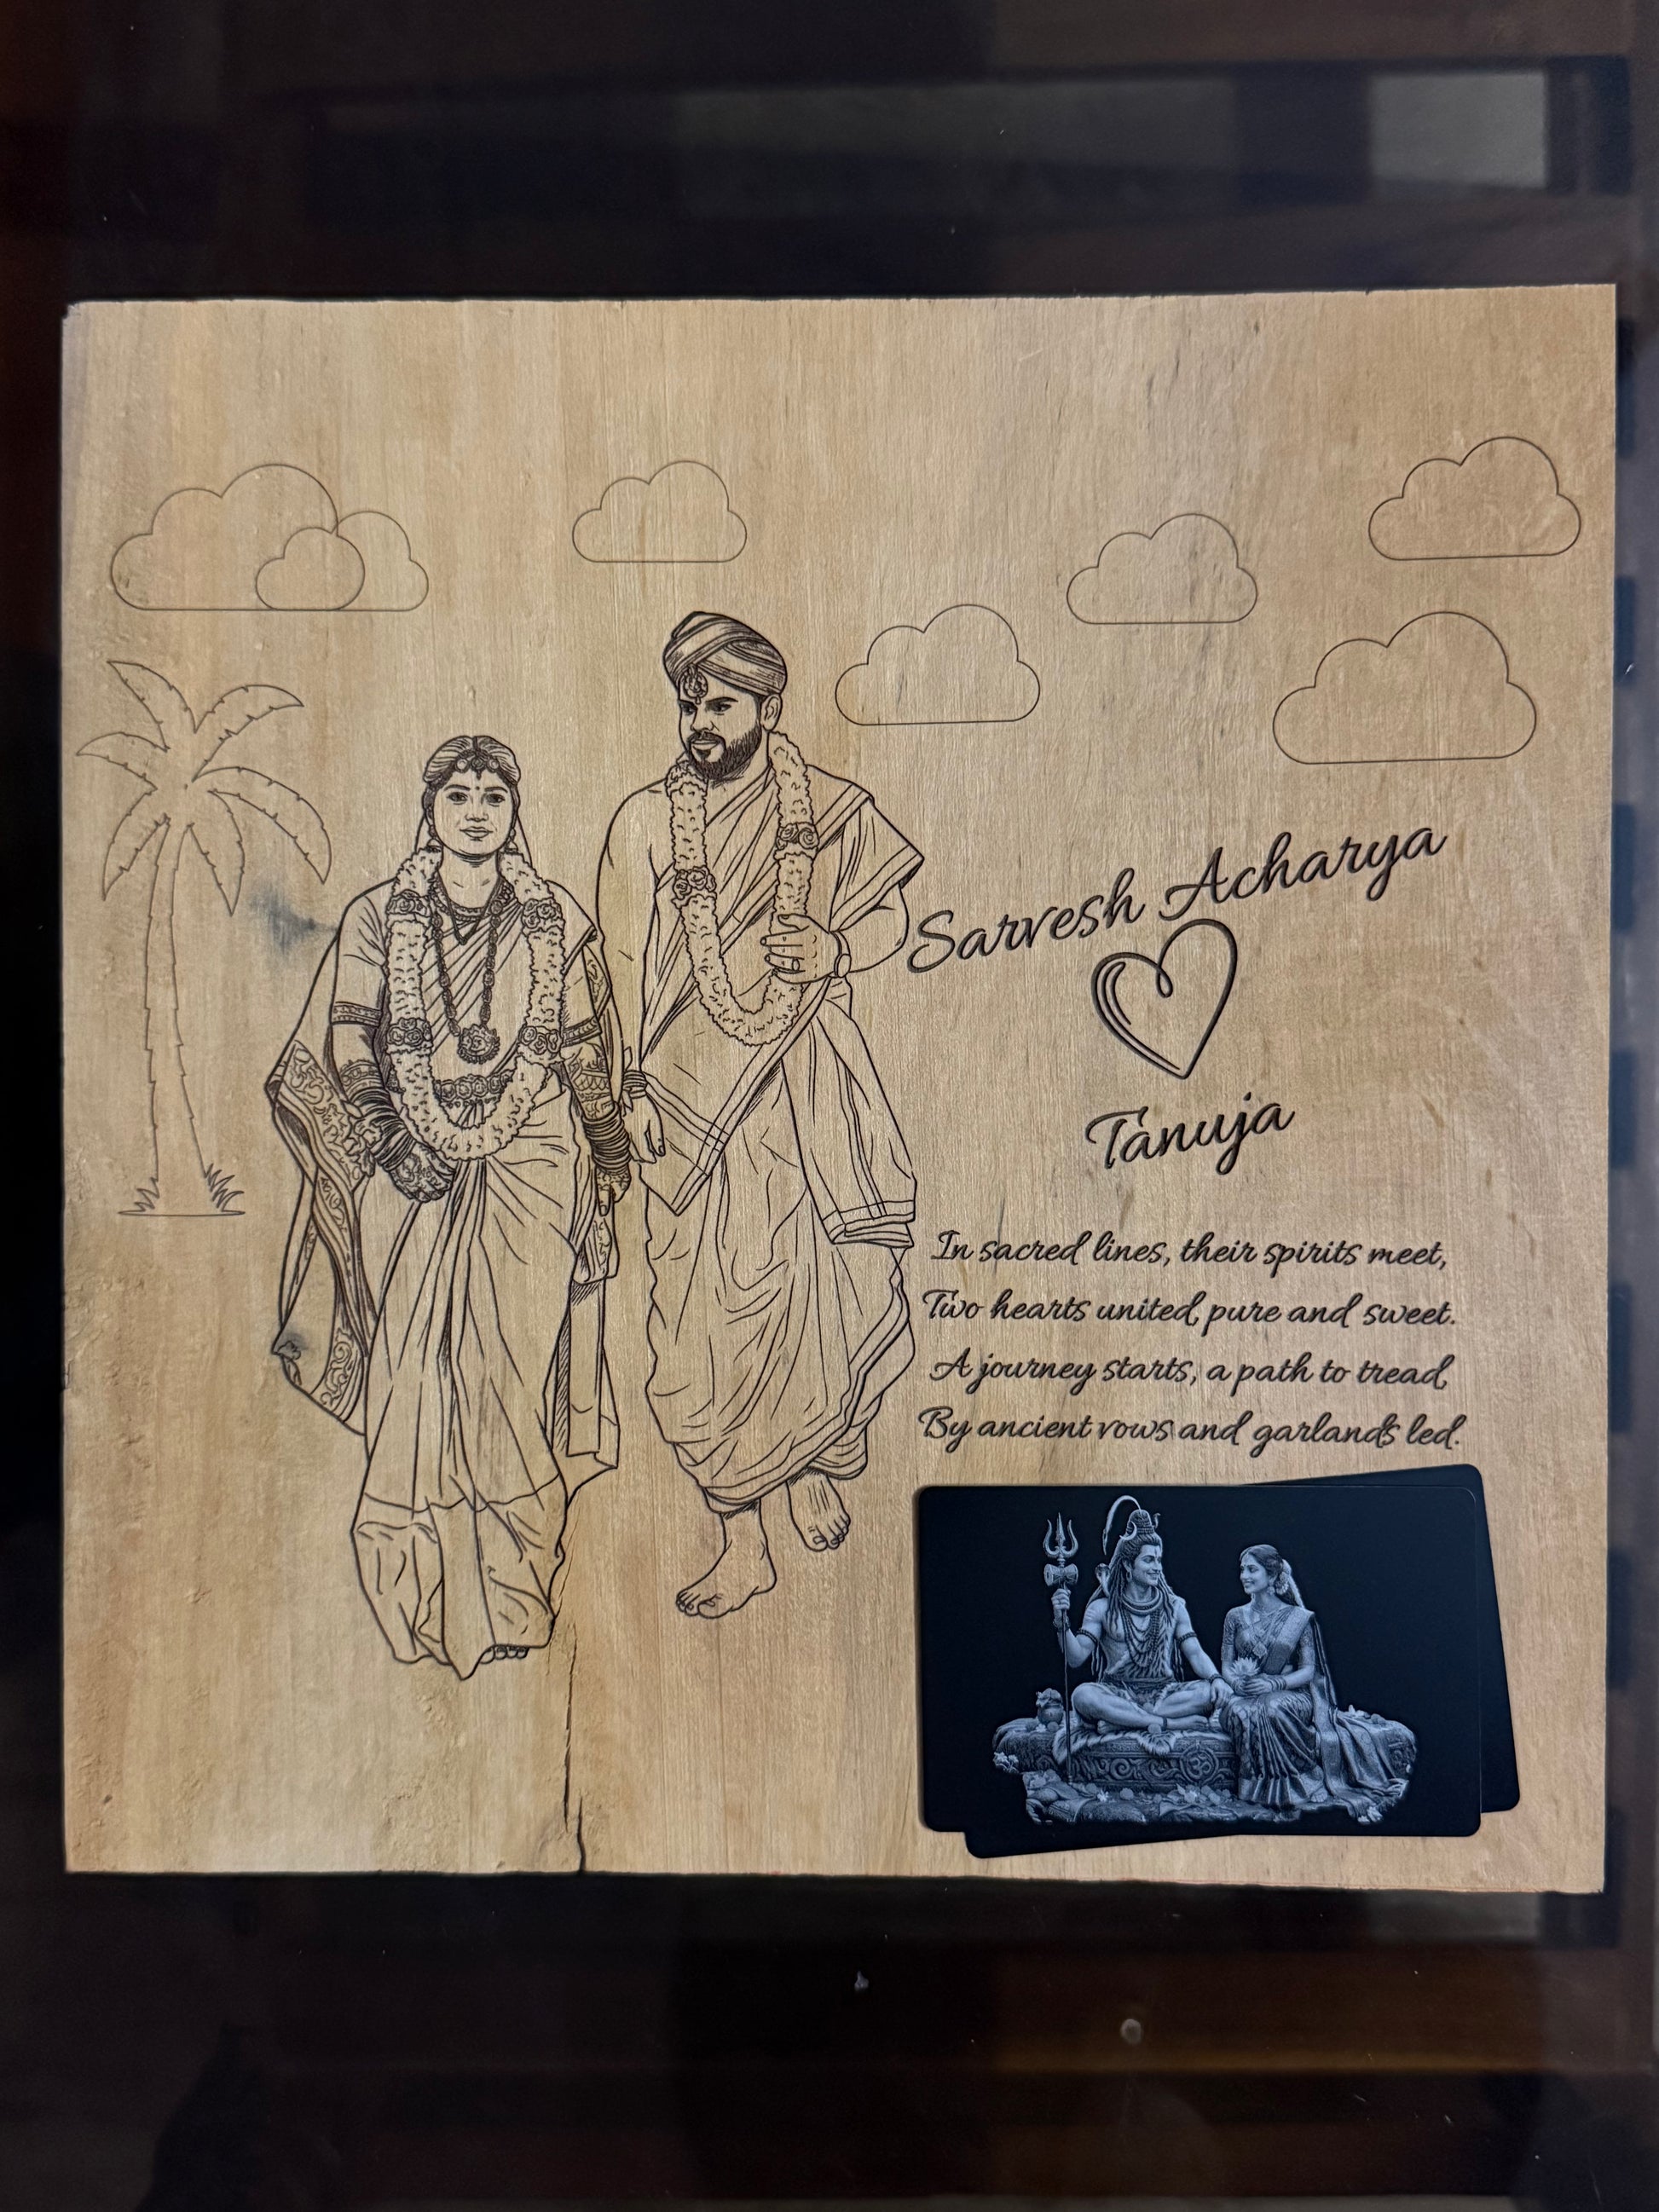 Sarvesh Acharya
Tanuja
In sacred lines, their spirits meet,
Two hearts united, pure and sweet.
A journey starts, a path to tread,
By ancient vows and garlands led.